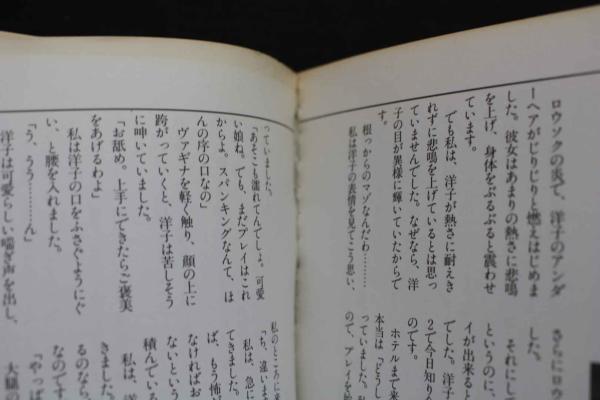 ロウソクの炎で、洋子のアンダ
ーヘアがじりじりと燃えはじめま
した。彼女はあまりの熱さに悲鳴
を上げ、身体をぶるぶると震わせ
ています。
でも私は、洋子が熱さに耐えき
れずに悲鳴を上げているとは思っ
ていませんでした。なぜなら、洋
子の目が異様に輝いていたからで
す。
根っからのマゾなんだわ………
私は洋子の表情を見てこう思い、
っていました。
「あそこも濡れてんでしょ、可愛
い娘ね。でも、まだプレイはこれ
からよ。スパンキングなんて、ほ
んの序の口なの」
ヴァギナを軽く触り、顔の上に
跨がっていくと、洋子は苦しそう
に呻いていました。
「お舐め。上手にできたらご褒美
をあげるわよ」
私は洋子の口をふさぐようにぐ
い、と腰を入れました。
「う、うう………ん」
洋子は可愛らしい喘ぎ声を出し、
さらにロウ
した。
それにして
というのに、
イが出来ると
でした。洋子
2て今日知り
のです。
ホテルまで来
本当は「どうし
っていました。
ので、プレイを
私のところに来
「ち、違いま
私は、急に
てきました。
ば、もう怖が
なければお
ないという
積んでいる
私は、洋
きました。
るのなら、
なのです
「やっぱ
大騒の